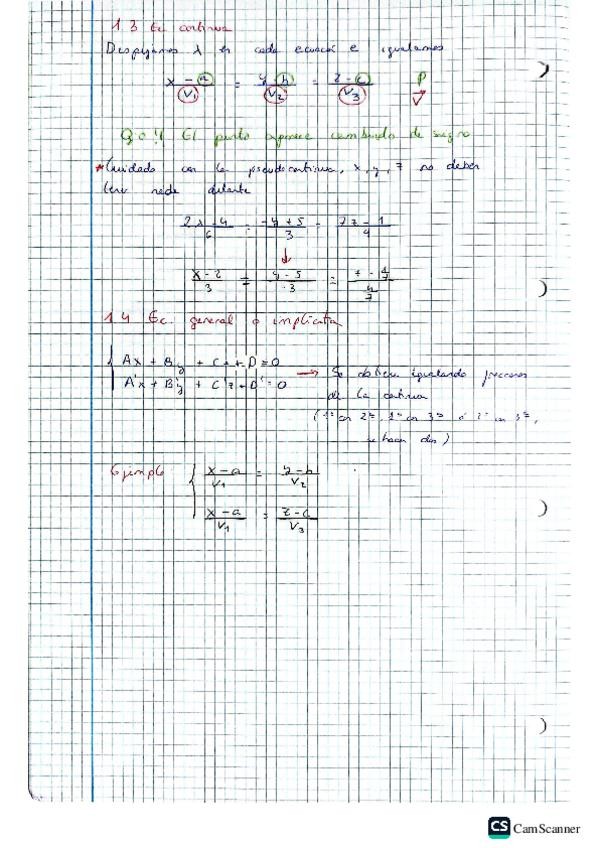 1.3 Ec continua
Despejamos λ en cada ecuació e igualamos
x - a / v₁ = y - b / v₂ = z - c / v₃ P v⃗
El punto aparece cambiado de signo
* Cuidado con la pseudocontinua, x, y, z no deben
delante
2x - 4 / 6 = -y + 5 / 3 = 7z - 1 / 4
↓
x - 2 / 3 = y - 5 / -3 = z - 1/7 / 4/7
1.4 Ec. general o implícita
{ Ax + By + Cz + D = 0 → Se obtiene igualando
A'x + B'y + C'z + D' = 0
de la continua
(1ª con 2ª, 1ª con 3ª ó 2ª con 3ª,
se hacen dos)
Ejemplo { x - a / v₁ = y - b / v₂
x - a / v₁ = z - c / v₃
CS CamScanner